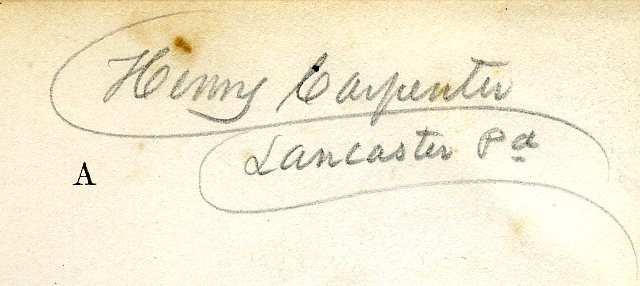 Henry Carpenter
Lancaster Pa
A